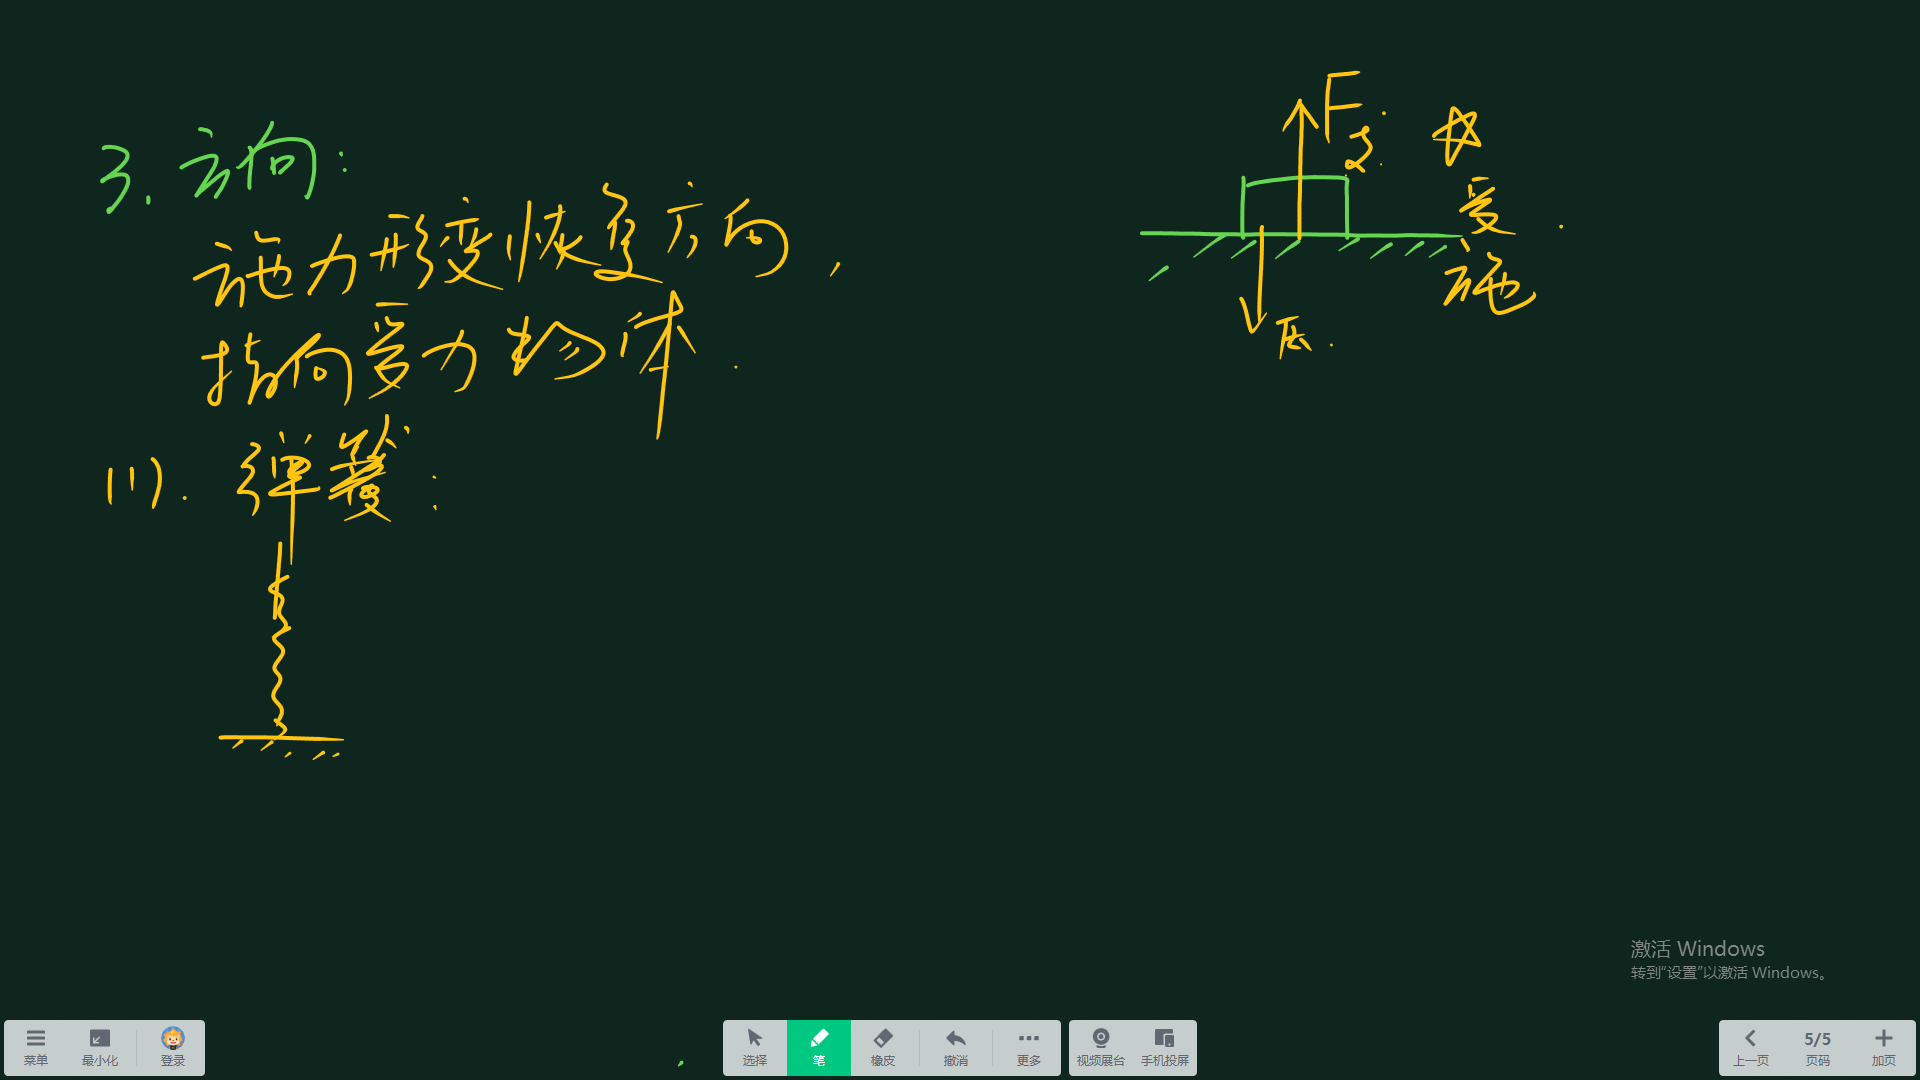 3. 方向：
施力形变恢复方向，
指向受力物体．
(1). 弹簧：
F支．
F压．
受．
施
激活 Windows
转到“设置”以激活 Windows。
菜单
最小化
登录
选择
笔
橡皮
撤消
更多
视频展台
手机投屏
上一页
5/5
页码
加页